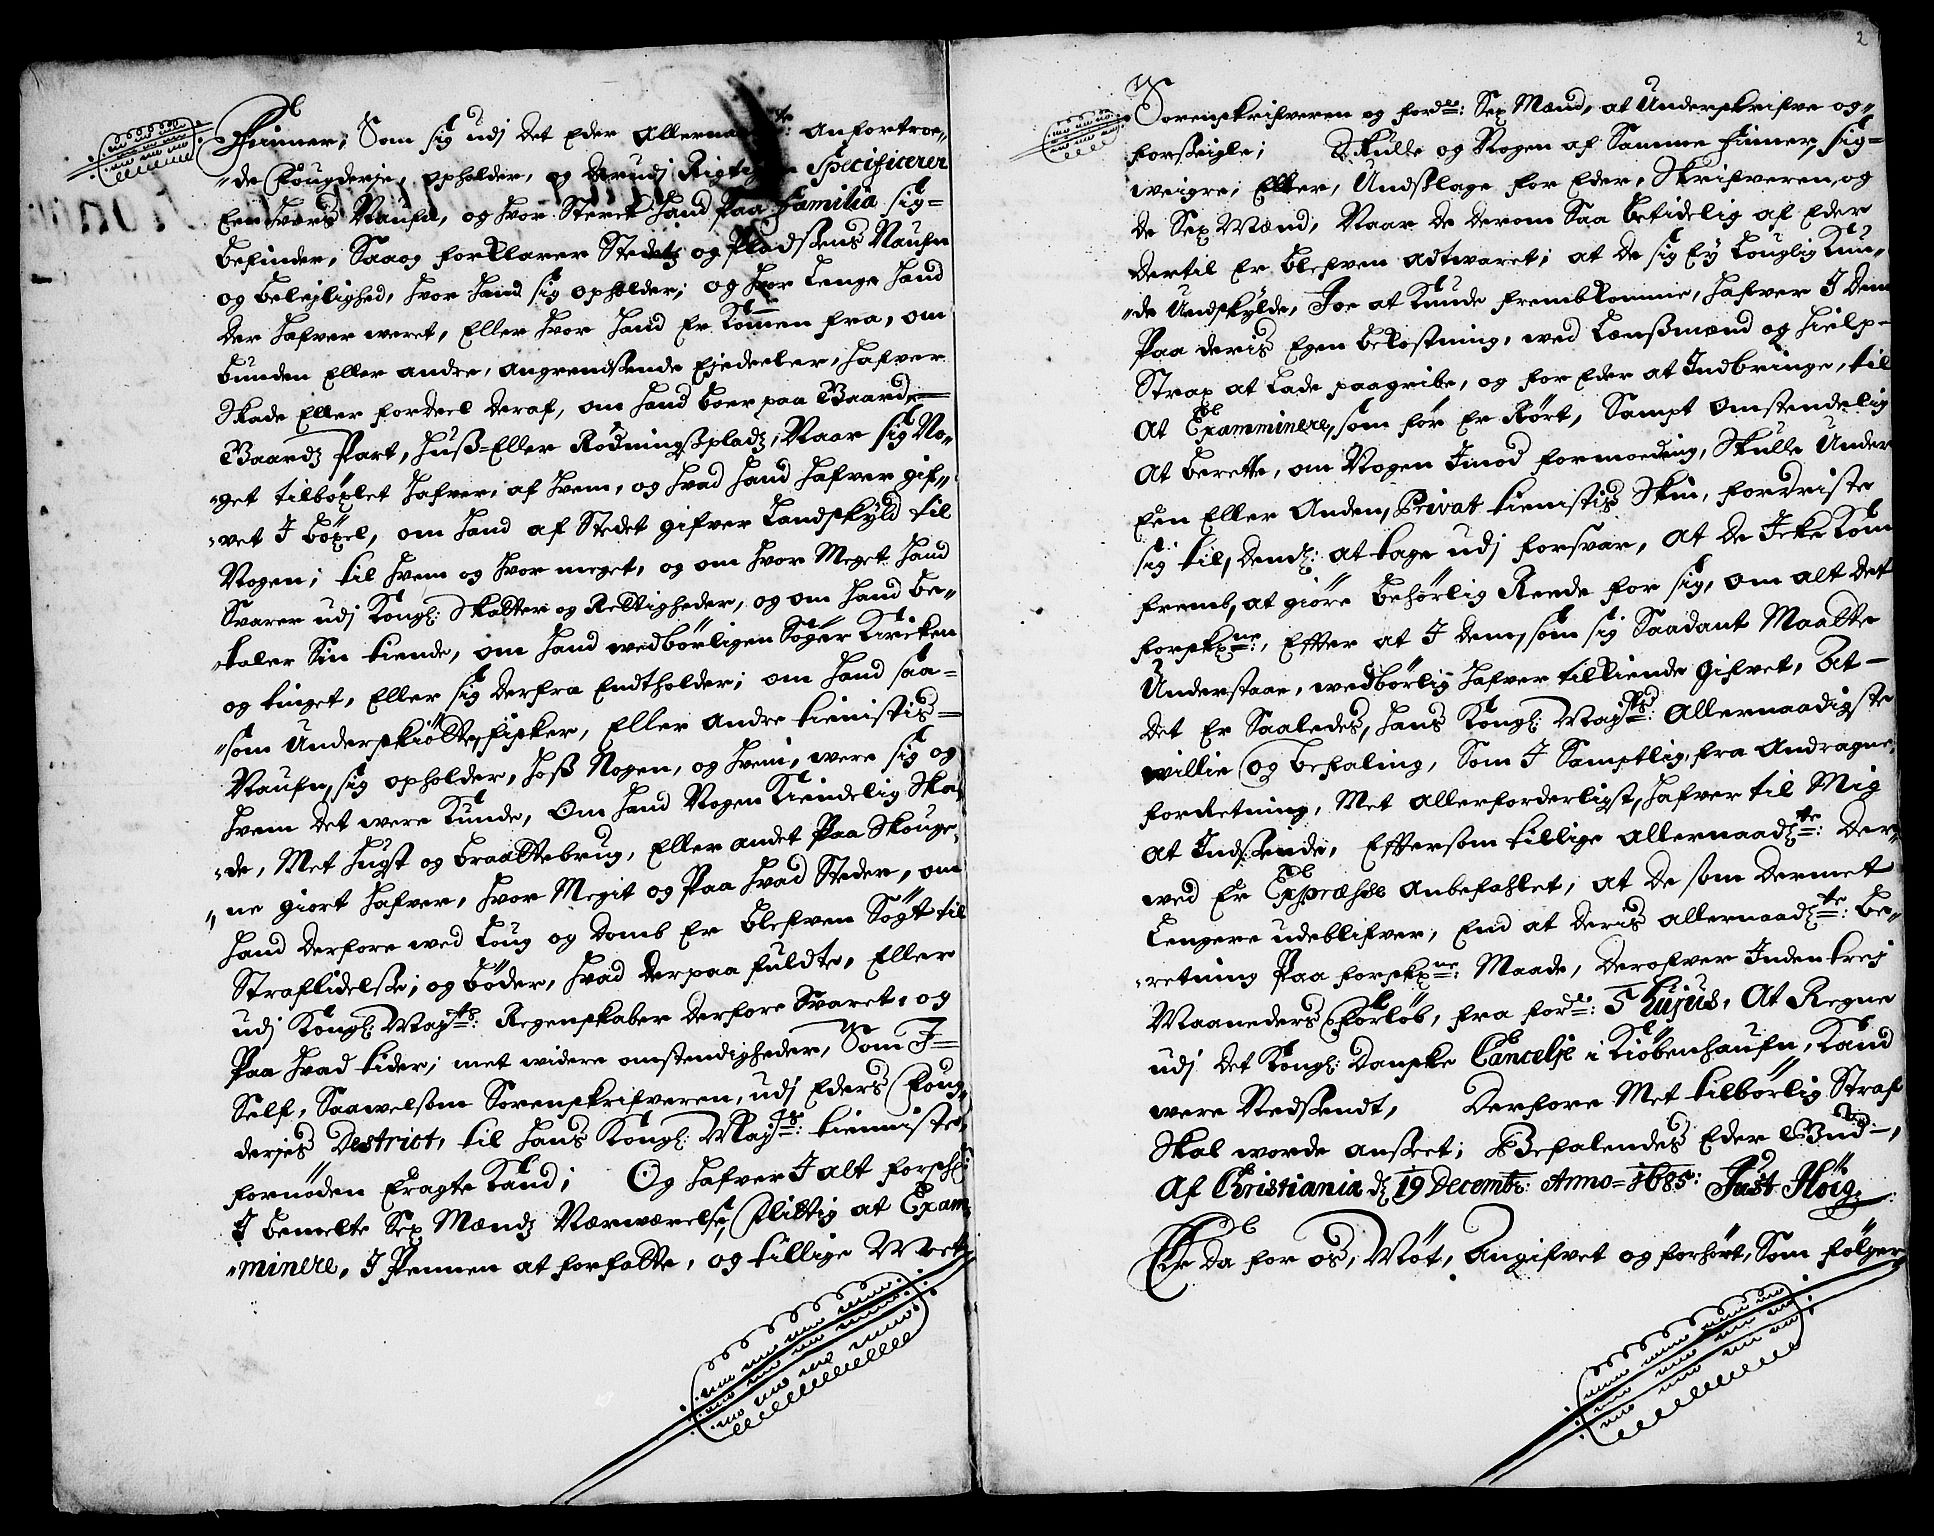 Finner, Som sig udj det Eder Allernaad: te Anfortroe„
„de Fougderje, opholder, og derudj Rigtig Specificerer
Een hvers Naufn, og hvor Sterck hand Paa Familia sig=
befinder, Saa og forklarer Stedetz og Pladsens Naufn
og beleylighed, hvor hand sig opholder; og hvor Lenge hand
der hafver weret, Eller hvor hand Er Kommen fra, om
bunden Eller andre, angrendsende Ejedeeler, hafver
Skade Eller fordeel deraf, om hand boer paa Gaard,
Gaardz Part, Huß= Eller Rødningsplads, Naar sig No„
„get tilbøxlet hafver, af hvem, og hvad hand hafver gif„
„vet I bøxel, om hand af Stedet gifver Landskyld til
Nogen; til hvem og hvor meget, og om hvor Meget hand
Svarer udj Kongl: Skatter og Rettigheder, og om hand be„
„taler Sin tiende, om hand wedbørligen Søger Kircken
og tinget, Eller sig derfra Endtholder; om hand saa=
„som Underskiøtte, fisker, Eller andre tienistis=
Naufn, sig opholder, hoß Nogen, og hvem, were sig og
hvem det were Kunde, Om hand Nogen Kiendelig Ska„
„de, Met Hugst og Braattebrug, Eller andet Paa Skouge„
„ne giort hafver, hvor Megit og Paa hvad Steder, om
hand derfore wed Loug og Domb Er blefven Søgt til
Straflidelse; og bøder, hvad derpaa fuldte, Eller
udj Kongl: May:ts Regenskaber derfore Svaret, og
Paa hvad tider; met widere omstendigheder, Som I=
Self, Saawelsom Sorenskrifveren, udj Eders Foug„
derjes Destrict, til Hans Kongl: May:ts tienniste,
fornøden Eragte Kand; Og hafver I alt forschl:
I bemelte Sex Mændz Nærwærelse, flittig at Exam„
„minere, I Pennen at forfatte, og tillige Met
2
Sorenskrifveren og ford:ne Sex Mænd, at Underskrifve og„
forseigle; Skulle og Nogen af Samme Finner, sig=
weigre, Eller, Undslage for Eder, Skrifveren, og
de Sex Mænd, Naar de derom Saa betidelig af Eder
dertil Er blefven adtwaret; at de sig Ey Louglig Kun„
„de Undskylde, Joe at Kunde frembkomme, hafver I dem
Paa deris Egen bekostning, wed Lensmænd og Hielp=
Strax at Lade paagribe, og for Eder at Indbringe, til
At Examminere, som før Er Rørt, Sampt omstendelig
At berette, om Nogen Imod formoeding, Skulle Under
Een Eller Anden, Privat tienistis Skin, fordriste
sig til, dend: at tage udj forsvar, at de Icke Kom
fremb, at giøre behørlig Reede for sig, om alt det
forskr:ne, Efter at I dem, som sig Saadant Maatte
Understaae, wedbørlig hafver tilkiende gifvet, At=
det Er Saaledes, Hans Kongl: May:ts Allernaadigste
willie og befaling, Som I Samptlig, fra Andragne,
forretning, Met Allerforderligst, hafver til Mig
At Indsende, Eftersom tillige Allernaad:te der„
wed Er Expræsse Anbefahlet, at de som dermet
Lengere udeblifver, End at deris Allernaad:te be„
„retning Paa forskr:ne Maade, derofver Inden trej
Maaneders forløb, fra for:e 5 Hujus, At Regne
udj det Kongl: Danske Cancelje i Kiøbenhaufn, Kand
were Nedsendt, Derfore Met tilbørlig Straf
Skal worde anseet; Befalendes Eder Gud,
Af Christiania d: 19 Decembr: Anno= 1685: Just Høig
Ere da for os, Møt, Angifvet og forhørt, Som følger